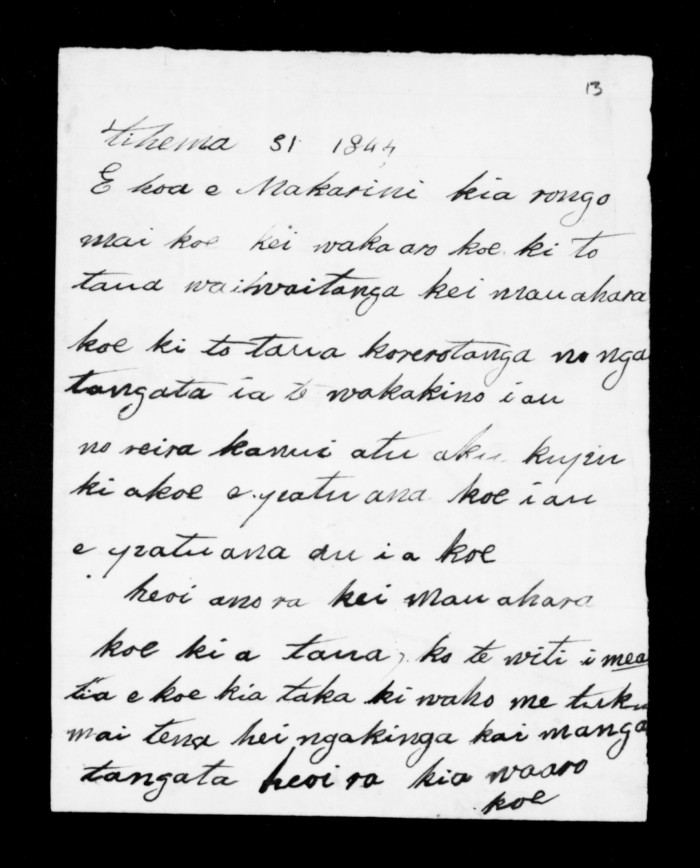 13
tihema 31 1844
E hoa e Makarini kia rongo
mai koe kei waka aro koe ki to
taua waiwaitanga kei mauahara
koe ki to taua korerotanga no nga
tangata ia te wakakino i au
no reira kanui atu aku kupu
ki akoe e patu ana koe i au
e patu ana au i a koe
heoi ano ra kei mau ahara
koe ki a taua, ko te witi i mea
tia e koe kia taka ki waho me tuku
mai tena hei ngakinga kai manga
tangata heoi ra kia waaro
koe